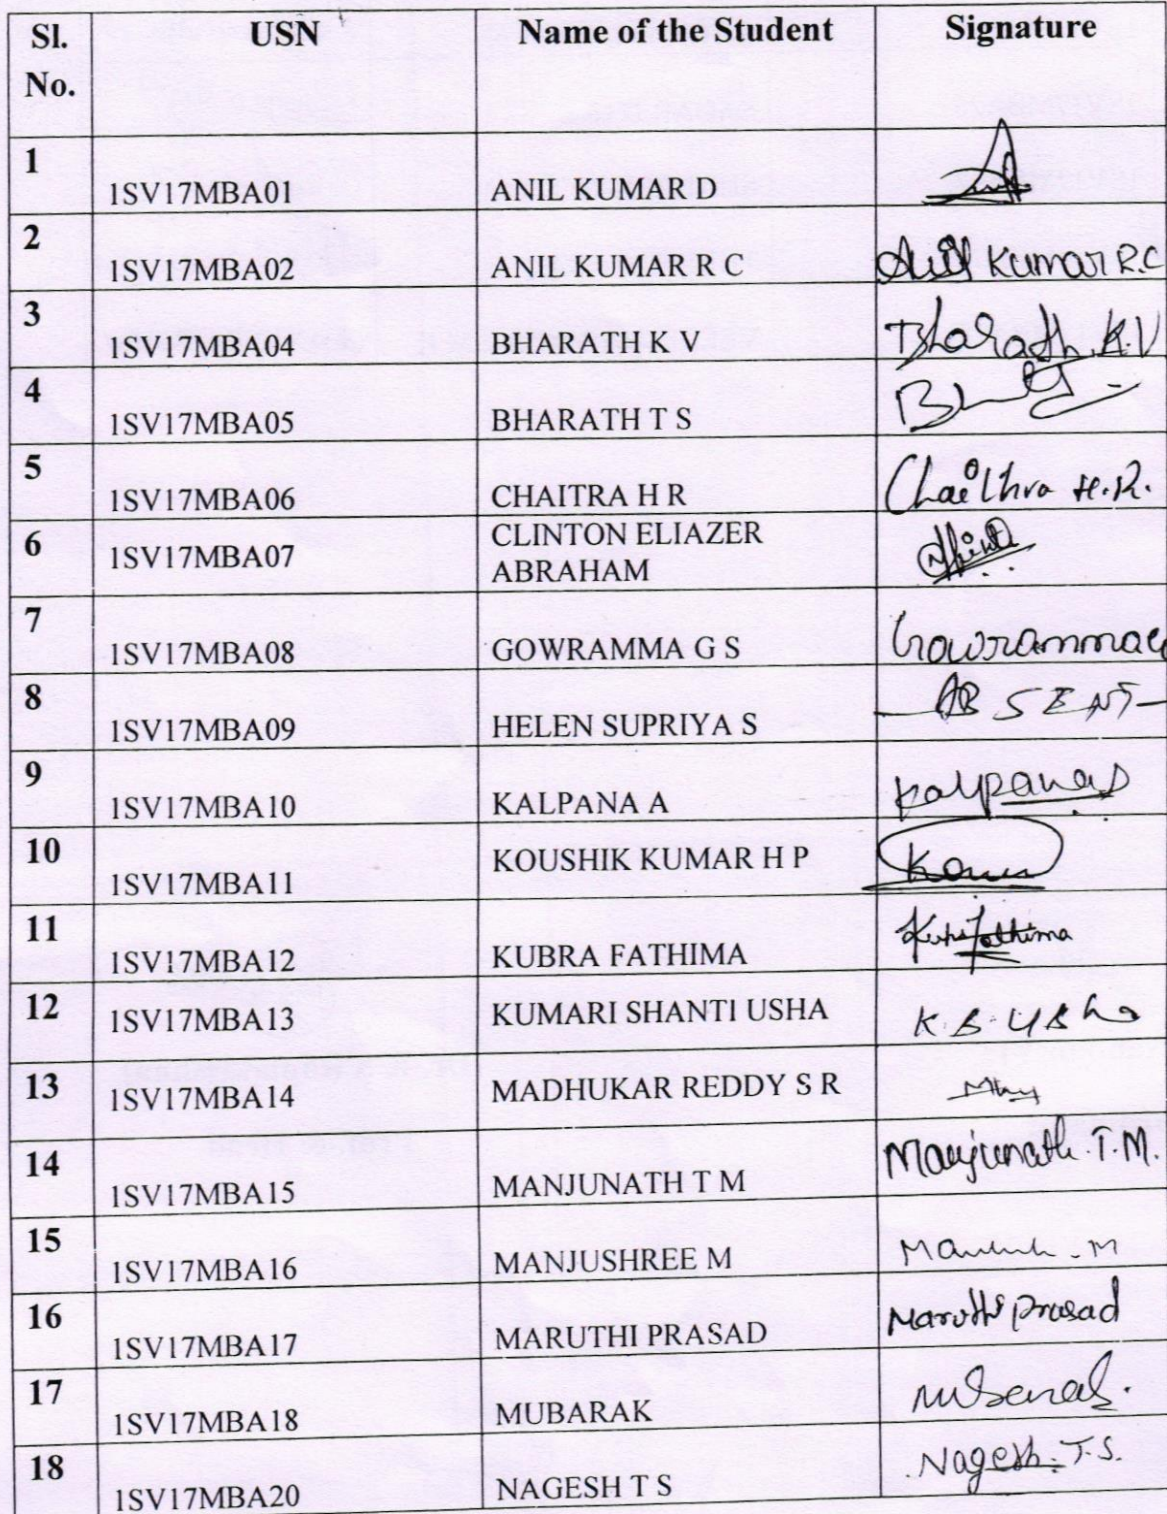 Sl. No. USN Name of the Student Signature
1 1SV17MBA01 ANIL KUMAR D
2 1SV17MBA02 ANIL KUMAR R C Anil Kumar R.C
3 1SV17MBA04 BHARATH K V Bharath.K.V
4 1SV17MBA05 BHARATH T S
5 1SV17MBA06 CHAITRA H R Chaithra H.R.
6 1SV17MBA07 CLINTON ELIAZER
ABRAHAM
7 1SV17MBA08 GOWRAMMA G S
8 1SV17MBA09 HELEN SUPRIYA S - ABSENT -
9 1SV17MBA10 KALPANA A
10 1SV17MBA11 KOUSHIK KUMAR H P
11 1SV17MBA12 KUBRA FATHIMA
12 1SV17MBA13 KUMARI SHANTI USHA K.S.Usha
13 1SV17MBA14 MADHUKAR REDDY S R
14 1SV17MBA15 MANJUNATH T M Manjunath.T.M.
15 1SV17MBA16 MANJUSHREE M
16 1SV17MBA17 MARUTHI PRASAD Maruthi Prasad
17 1SV17MBA18 MUBARAK
18 1SV17MBA20 NAGESH T S Nagesh.T.S.